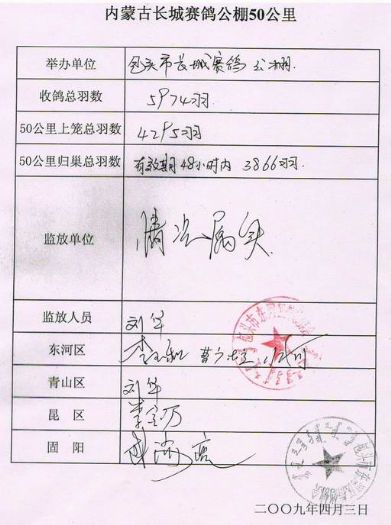 内蒙古长城赛鸽公棚50公里
举办单位 包头市长城赛鸽公棚
收鸽总羽数 5974羽
50公里上笼总羽数 4295羽
50公里归巢总羽数 有效期48小时内 3866羽
监放单位 情况属实
监放人员 刘华
东河区
青山区 刘华
昆 区 李金万
固 阳
二00九年四月三日